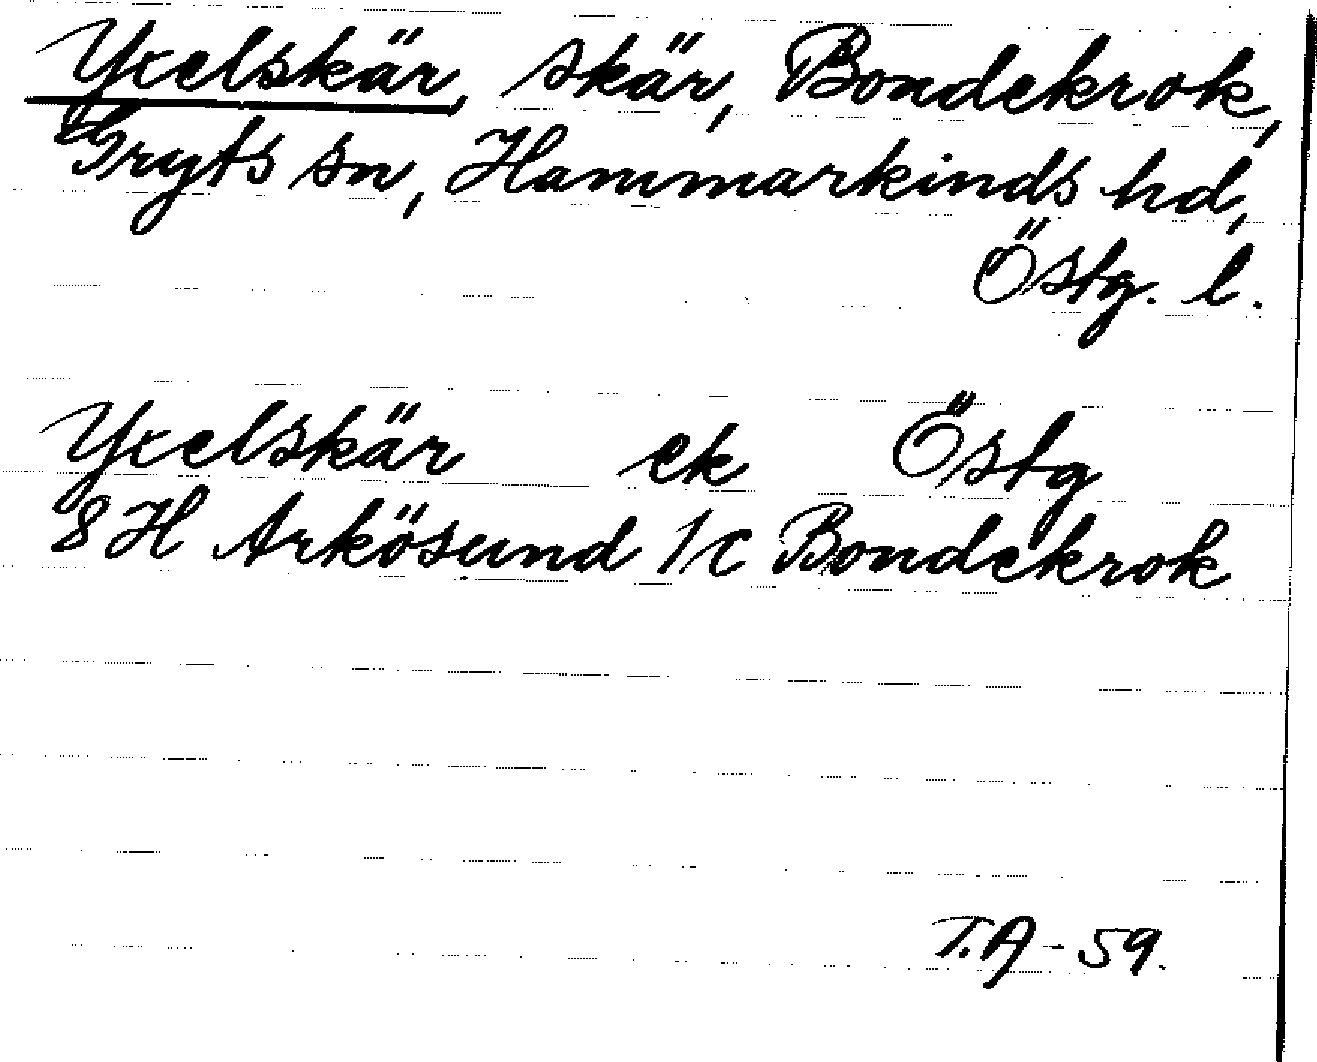 Yxelskär, skär, Bondekrok,
Gryts sn, Hammarkinds hd,
Östg. l.
Yxelskär ek Östg
8H Arkösund 1c Bondekrok
T.A - 59.